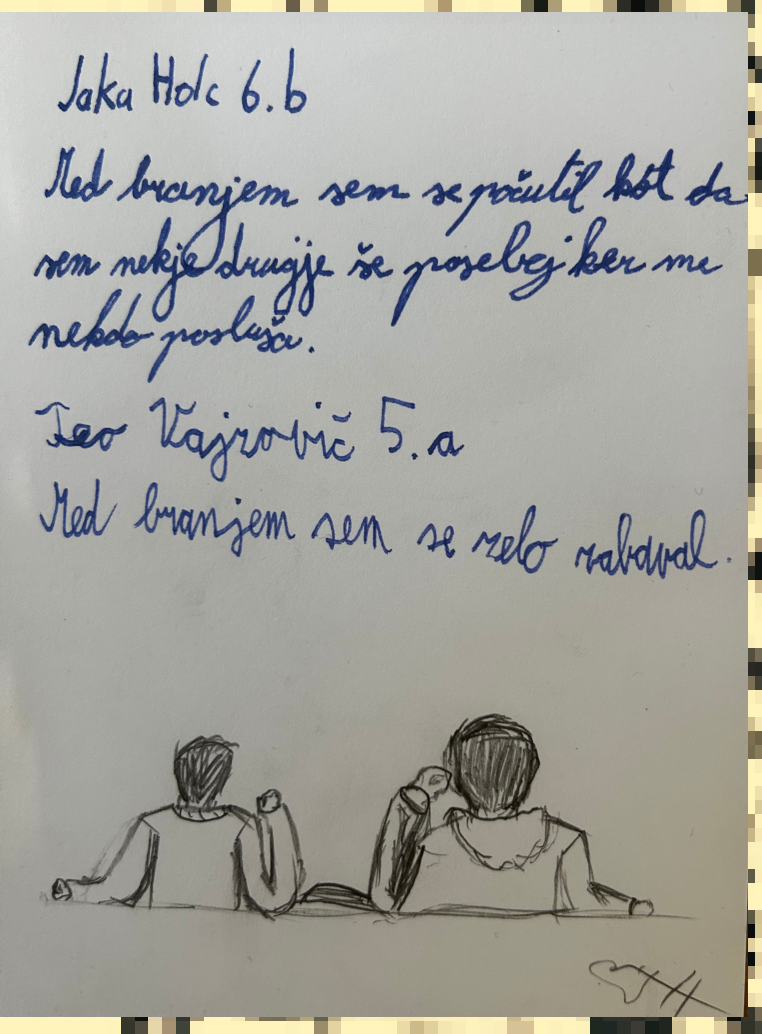 Jaka Holc 6.b
Med branjem sem se počutil kot da
sem nekje drugje še posebej ker me
nekdo posluša.
Teo Vajzovič 5.a
Med branjem sem se zelo zabaval.